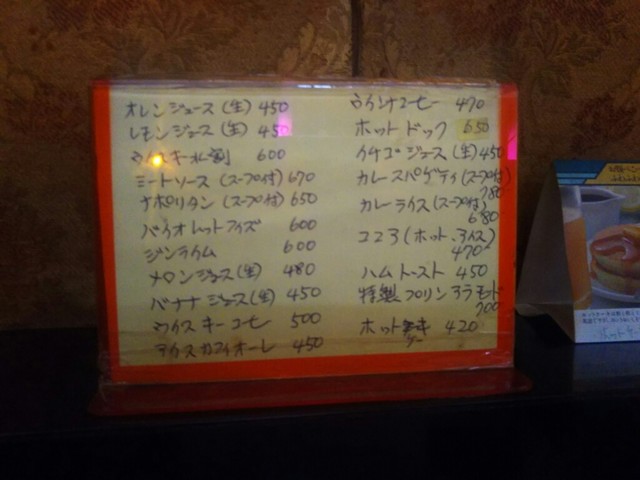 オレンジュース(生) 450
レモンジュース(生) 450
ウイスキー水割 600
ミートソース(スープ付) 670
ナポリタン(スープ付) 650
バイオレットフィズ 600
ジンライム 600
メロンジュース(生) 480
バナナジュース(生) 450
ウイスキーコーヒー 500
アイスカフィオーレ 450
ウインナコーヒー 470
ホットドック 650
イチゴジュース(生) 450
カレースパゲティ(スープ付)
780
カレーライス(スープ付)
680
ココア(ホット、アイス)
470
ハムトースト 450
特製プリンアラモード
700
ホット 420